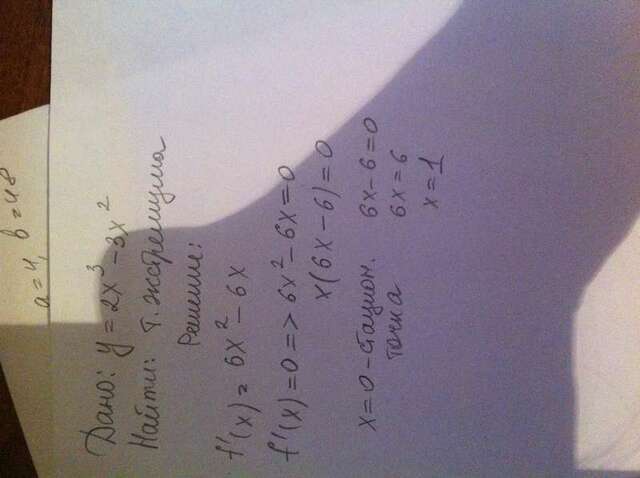 a=4, b=48
Дано: y = 2x³ - 3x²
Найти: т. экстремума
Решение:
f'(x) = 6x² - 6x
f'(x) = 0 => 6x² - 6x = 0
x(6x - 6) = 0
x = 0 - стацион. 6x - 6 = 0
точка 6x = 6
x = 1